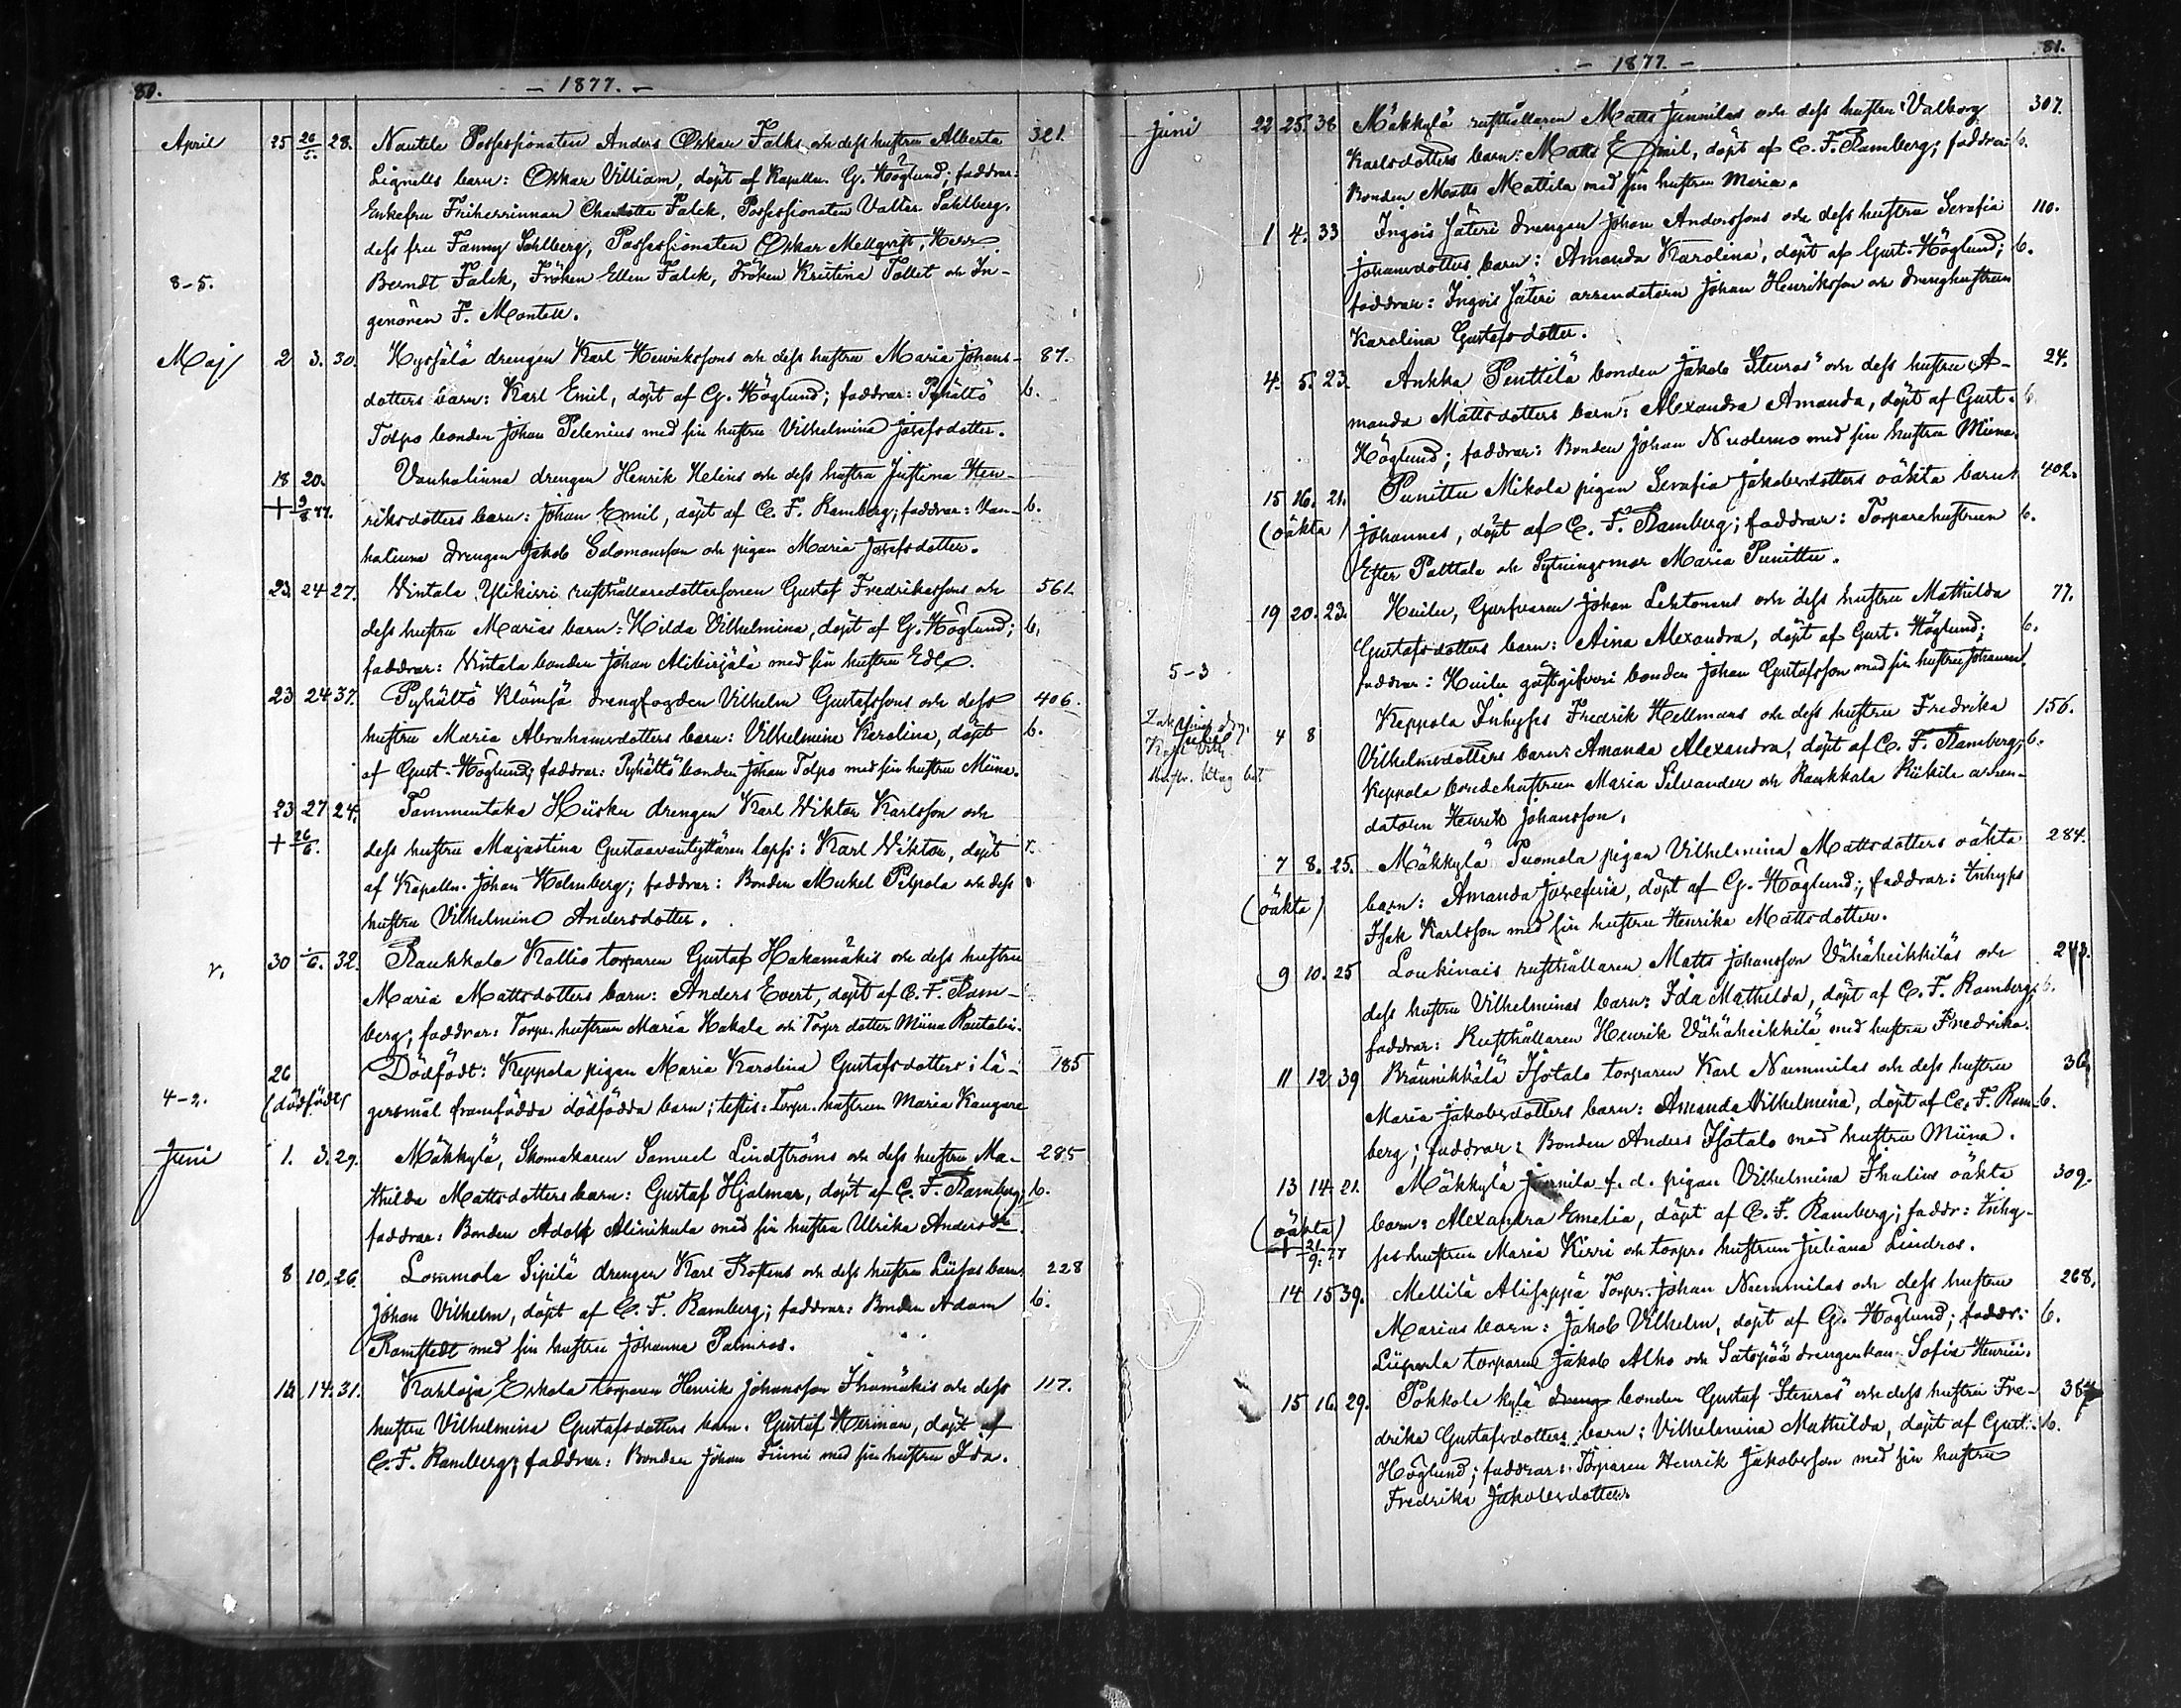 80.
- 1877. -
April 25 26/5. 28. Nautela Possessionaten Anders Oskar Falks och dess hustru Alberta 321.
Lignells barn: Oskar Villiam, döpt af Kapellan G. Höglund; faddrar:
Enkefru Friherrinnan Charlotte Falck, Possessionaten Valter Sahlberg,
dess fru Fanny Sahlberg, Possessionaten Oskar Mellqvist, Herr
8-5. Berndt Falck, Fröken Ellen Falck, Fröken Kristina Tollet och In-
genören F. Montell.
Maj 2 3. 30. Hypjälä drengen Karl Henrikssons och dess hustru Maria Johans- 87.
dotters barn: Karl Emil, döpt af G. Höglund; faddrar: Pyhältö b.
Tolpo bonden Johan Pelenius med sin hustru Vilhelmina Josefsdotter.
18 20. Vanhalinna drengen Henrik Helens och dess hustru Justina Hen-
+ 9/8 77. riksdotters barn: Johan Emil, döpt af C. F. Ramberg; faddrar: Van- b.
halinna drengen Jakob Salomonsson och pigan Maria Josefsdotter.
23. 24 27. Vintala Ylikirri rusthållaredottersonen Gustaf Fredrikssons och 561.
dess hustru Marias barn: Hilda Vilhelmina, döpt af G. Höglund; b.
faddrar: Vintala bonden Johan Alikirjälä med sin hustru Edla.
23 24 37. Pyhältö Klämsä drengfogden Vilhelm Gustafssons och dess 406.
hustru Maria Abrahamsdotters barn: Vilhelmina Karolina, döpt b.
af Gust. Höglund; faddrar: Pyhältö bonden Johan Tolpo med sin hustru Miina.
23 27 24. Tammentaka Hiisku drengen Karl Viktor Karlsson och
+ 26/6. dess hustru Majastina Gustaavantyttären lapsi: Karl Viktor, döpt r.
af Kapellan. Johan Holmberg; faddrar: Bonden Mickel Pilpola och dess
hustru Vilhelmina Andersdotter.
r. 30 1/6. 32. Raukkala Kallio torparen Gustaf Hakamäkis och dess hustru
Maria Mattsdotters barn: Anders Evert, döpt af C. F. Ram- b.
berg; faddrar: Torp. hustrun Maria Hakala och Torpr dotter Miina Rautalin.
26 Dödfödt: Keppola pigan Maria Karolina Gustafsdotters i lä- 185
4-2. (dödfödt) gersmål framfödda dödfödda barn; testis: Torpr. hustrun Maria Kangare
Juni 1. 3. 29. Mäkkylä, Skomakaren Samuel Lindströms och dess hustru Ma- 285
thilda Mattsdotters barn: Gustaf Hjalmar, döpt af C. F. Ramberg; b.
faddrar: Bonden Adolf Alinikula med sin hustru Ulrika Andersdr.
8 10. 26. Lommola Sipilä drengen Karl Rostens och dess hustru Liisas barn 228
Johan Vilhelm, döpt af C. F. Ramberg; faddrar: Bonden Adam b.
Ramstedt med sin hustru Johanna Palmros.
12 14. 31. Karlaja Erkola torparen Henrik Johansson Ihamäkis och dess 117.
hustru Vilhelmina Gustafsdotters barn. Gustaf Herman, döpt af
C. F. Ramberg; faddrar: Bonden Johan Finni med sin hustru Ida.
81.
- 1877. -
Juni 22 25. 38 Mäkkylä rusthållaren Matts Junnilas och dess hustru Valborg 307.
Karlsdotters barn: Matts Emil, döpt af C. F. Ramberg; faddrar: b.
Bonden Matts Mattila med sin hustru Maria.
1 4. 33 Ingois Säteri drengen Johan Anderssons och dess hustru Serafia 110.
Johansdotters barn: Amanda Karolina, döpt af Gust. Höglund; b.
faddrar: Ingois Säteri arrendatorn Johan Henriksson och drenghustrun
Karolina Gustafsdotter.
4. 5. 23. Ankka Penttilä bonden Jakob Stenros' och dess hustru A- 24.
manda Mattsdotters barn: Alexandra Amanda, döpt af Gust. b.
Höglund; faddrar: Bonden Johan Nuolemo med sin hustru Miina.
15 26. 21. Punittu Mikola pigan Serafia Jakobsdotters oäkta barn 402.
(oäkta) Johannes, döpt af C. F. Ramberg; faddrar: Torparehustrun b.
Ester Palttala och Sytningsmor Maria Punittu.
19 20. 23. Huilu, Garfvaren Johan Lehtonens och dess hustru Mathilda 77.
Gustafsdotters barn: Aina Alexandra, döpt af Gust. Höglund; b.
5-3 faddrar: Huilu gästgifveri bonden Johan Gustafsson med sin hustru Johanna.
4 8 Keppola Inhyses Fredrik Hellmans och dess hustru Fredrika 156.
Vilhelmsdotters barn: Amanda Alexandra, döpt af C. F. Ramberg; b.
Keppola bondehustrun Maria Silvander och Raukkala Riikilä arren-
datorn Henrik Johansson.
7 8. 25. Mäkkylä Tuomola pigan Vilhelmina Mattsdotters oäkta 284.
(oäkta) barn: Amanda Josefina, döpt af G. Höglund; faddrar: Inhyses
Isak Karlsson med sin hustru Henrika Mattsdotter.
9 10. 25 Loukinais rusthållaren Matts Johansson Vähäheikkiläs och 243.
dess hustru Vilhelminas barn: Ida Mathilda, döpt af C. F. Ramberg; b.
faddrar: Rusthållaren Henrik Vähäheikkilä med hustru Fredrika.
11 12 39 Bräunikkälä Isotalo torparen Karl Nummilas och dess hustru 36
Maria Jakobsdotters barn: Amanda Vilhelmina, döpt af C. F. Ram- b.
berg; faddrar: Bonden Anders Isotalo med hustru Miina.
13 14 21. Mäkkylä Junnila f. d. pigan Vilhelmina Thulins oäkta 309.
(oäkta) barn: Alexandra Emelia, döpt af C. F. Ramberg; faddr: Inhy-
+ 21/9. 77 ses hustrun Maria Kirri och torpr. hustrun Juliana Lindros.
14 15 39. Mellilä Aliseppä Torpr. Johan Nummilas och dess hustru 268.
Marias barn: Jakob Vilhelm, döpt af G. Höglund; faddr: b.
torparen Jakob Alho och Satopää drengenkan Sofia Henrici.
15 16. 29. Pokkola kylä bonden Gustaf Stenros' och dess hustru Fre- 387
drika Gustafsdotters barn: Vilhelmina Mathilda, döpt af Gust. b.
Höglund; faddrar: Torparen Henrik Jakobsson med sin hustru
Fredrika Jakobsdotter.